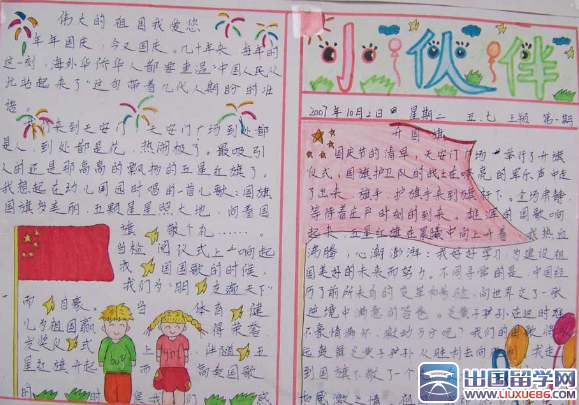 伟大的祖国我爱您
年年国庆,今又国庆。几十年来,每年的
这一刻,海外华侨华人都要重温"中国人民从
此站起来了"这句带着几代人期盼的壮
语。
来到天安门,天安门广场到处都
是人,到处都是花,热闹极了。最吸引
人的还是那高高的飘扬的五星红旗了。
我想起在幼儿园时唱的一首儿歌:国旗
国旗多美丽,五颗星星照大地,向着国
旗 敬个礼……。
当检阅仪式上一响起
我 国国歌的时候,
我们为"明 天下"
而 自豪。当 体育 健
儿为祖国赢 得荣誉,
发奖仪 式 上 伴随 五
星红旗升起 而 高奏国歌
的 时 时候 是我们
小伙伴
2007年10月2日 星期二 五.七 主题 第一期
升国旗
国庆节的清早,天安门广场 举行了升旗
仪式。国旗护卫队的战士在嘹亮的军乐声中走
了出来。旗手、护旗手来到旗杆下。全场肃静,
等待着庄严时刻的到来。雄浑的国歌响
起来,五星红旗在晨曦中向上升着。我热血
沸腾,心潮澎湃:我好好学习,为建设祖
国美好的未来而努力。不同寻常的是,中国经
历了前所未有的变革和 ,向世界交了一张
逆境中满意的答卷。炎黄子孙在这时怎
不豪情满怀、激动万分呢?我们的国歌将
起 炎黄子孙从胜利走向 我走
到国旗下敬了一个
感激之情
出国留学网
WWW.LIUXUE86.COM